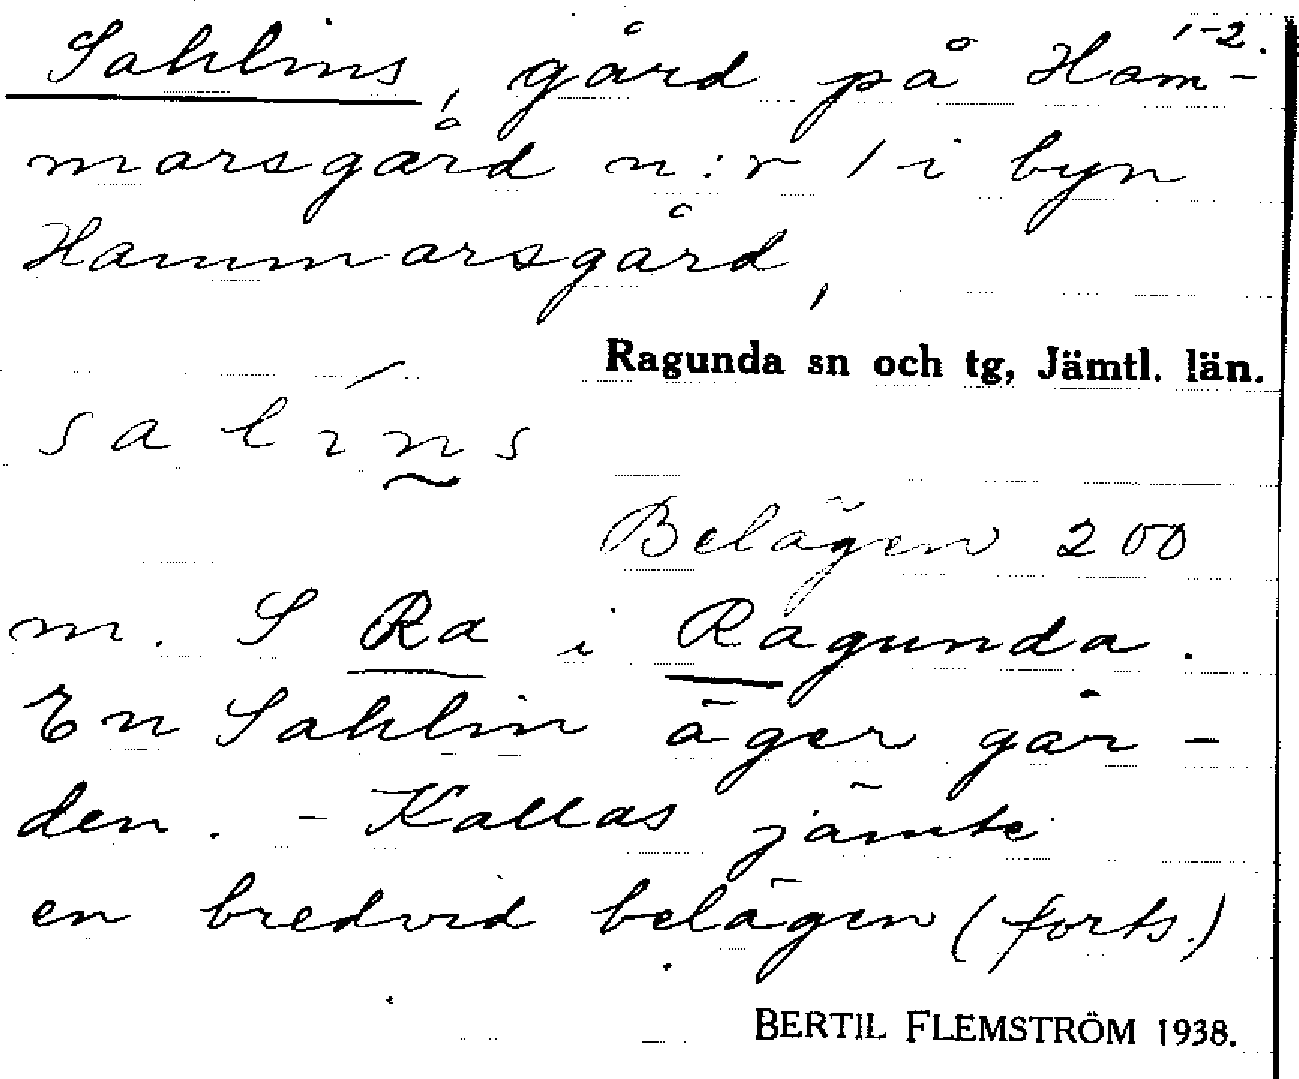 1-2.
Sahlins, gård på Ham-
marsgård n:r 1 i byn
Hammarsgård,
Ragunda sn och tg, Jämtl. län.
salíns
Belägen 200
m. S Ra i Ragunda.
En Sahlin äger går-
den. - Kallas jämte
en bredvid belägen (forts.)
BERTIL FLEMSTRÖM 1938.